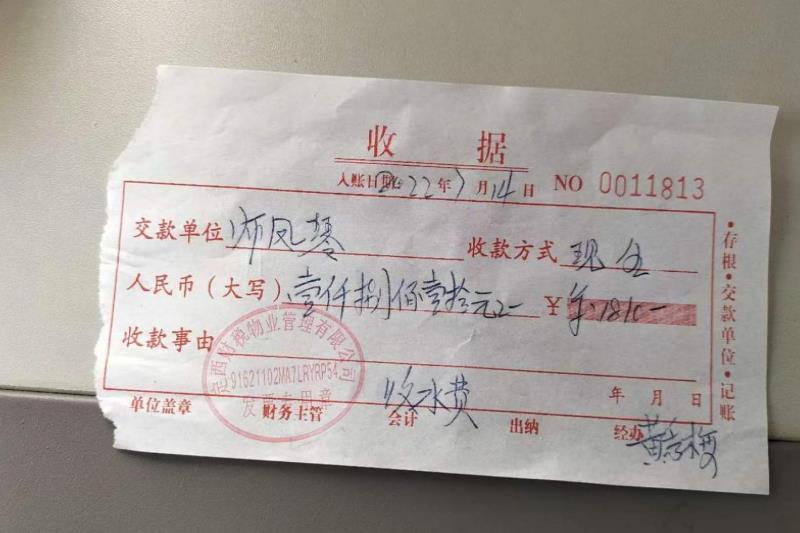 收 据
入账日期 2022年7月14日 NO 0011813
交款单位 凤琴 收款方式 现金
人民币（大写）壹仟捌佰壹拾元 ¥ 1810
收款事由
定西财税物业管理有限公司
91621102MA7LRYRP54
发票专用章
收水费
年 月 日
单位盖章 财务主管 会计 出纳 经办 黄梅
·存根·交款单位·记账